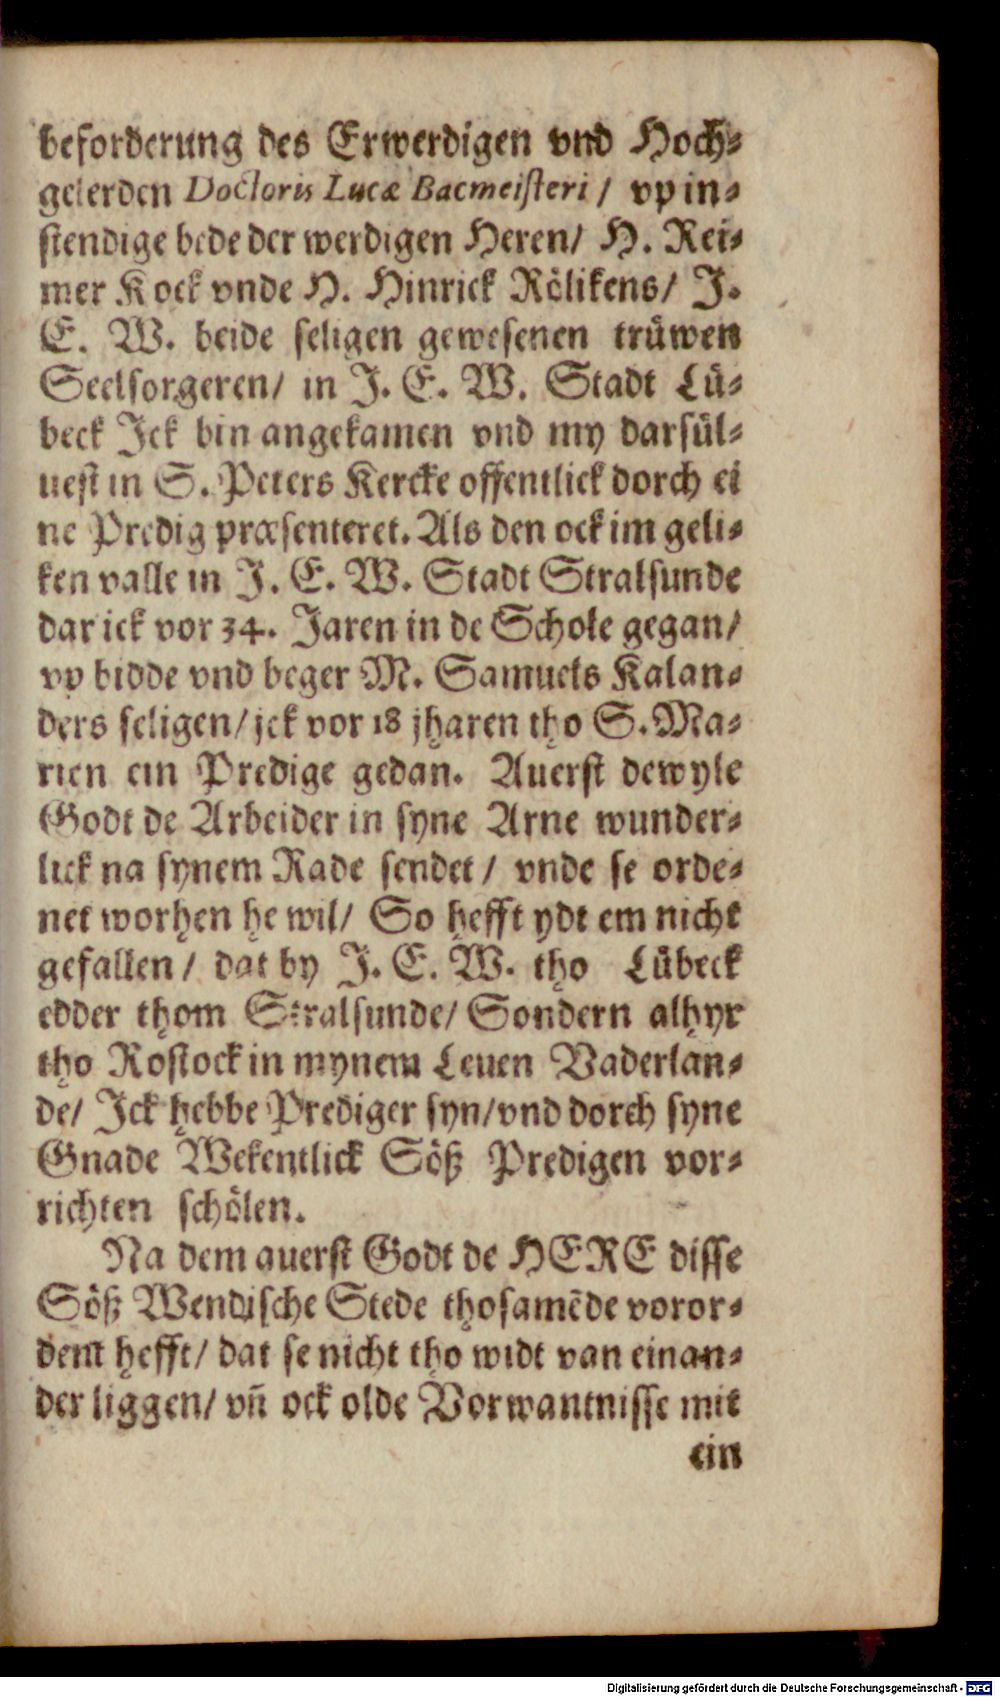 beforderung des Erwerdigen vnd Hoch⸗
gelerden Doctoris Lucæ Bacmeiſteri / vp in⸗
ſtendige bede der werdigen Heren/ H. Rei⸗
mer Kock vnde H. Hinrick Rölikens/ J.
E. W. beide ſeligen geweſenen trüwen
Seelſorgeren/ in J. E. W. Stadt Lü⸗
beck Jck bin angekamen vnd my darſül⸗
ueſt in S. Peters Kercke offentlick dorch ei
ne Predig præſenteret. Als den ock im geli⸗
ken valle in J. E. W. Stadt Stralſunde
dar ick vor 34. Jaren in de Schole gegan/
vp bidde vnd beger M. Samuels Kalan⸗
ders ſeligen/ jck vor 18 jharen tho S. Ma⸗
rien ein Predige gedan. Auerſt dewyle
Godt de Arbeider in ſyne Arne wunder⸗
lick na ſynem Rade ſendet / vnde ſe orde⸗
net worhen he wil/ So hefft ydt em nicht
gefallen / dat by J. E. W. tho Lübeck
edder thom Stralſunde/ Sondern alhyr
tho Roſtock in mynem Leuen Vaderlan⸗
de/ Jck hebbe Prediger ſyn/ vnd dorch ſyne
Gnade Wekentlick Söß Predigen vor⸗
richten ſchölen.
Na dem auerſt Godt de HERE diſſe
Söß Wendiſche Stede thoſamēde voror⸗
dent hefft/ dat ſe nicht tho widt van einan⸗
der liggen/ vñ ock olde Vorwantniſſe mit
ein
Digitalisierung gefördert durch die Deutsche Forschungsgemeinschaft - DFG